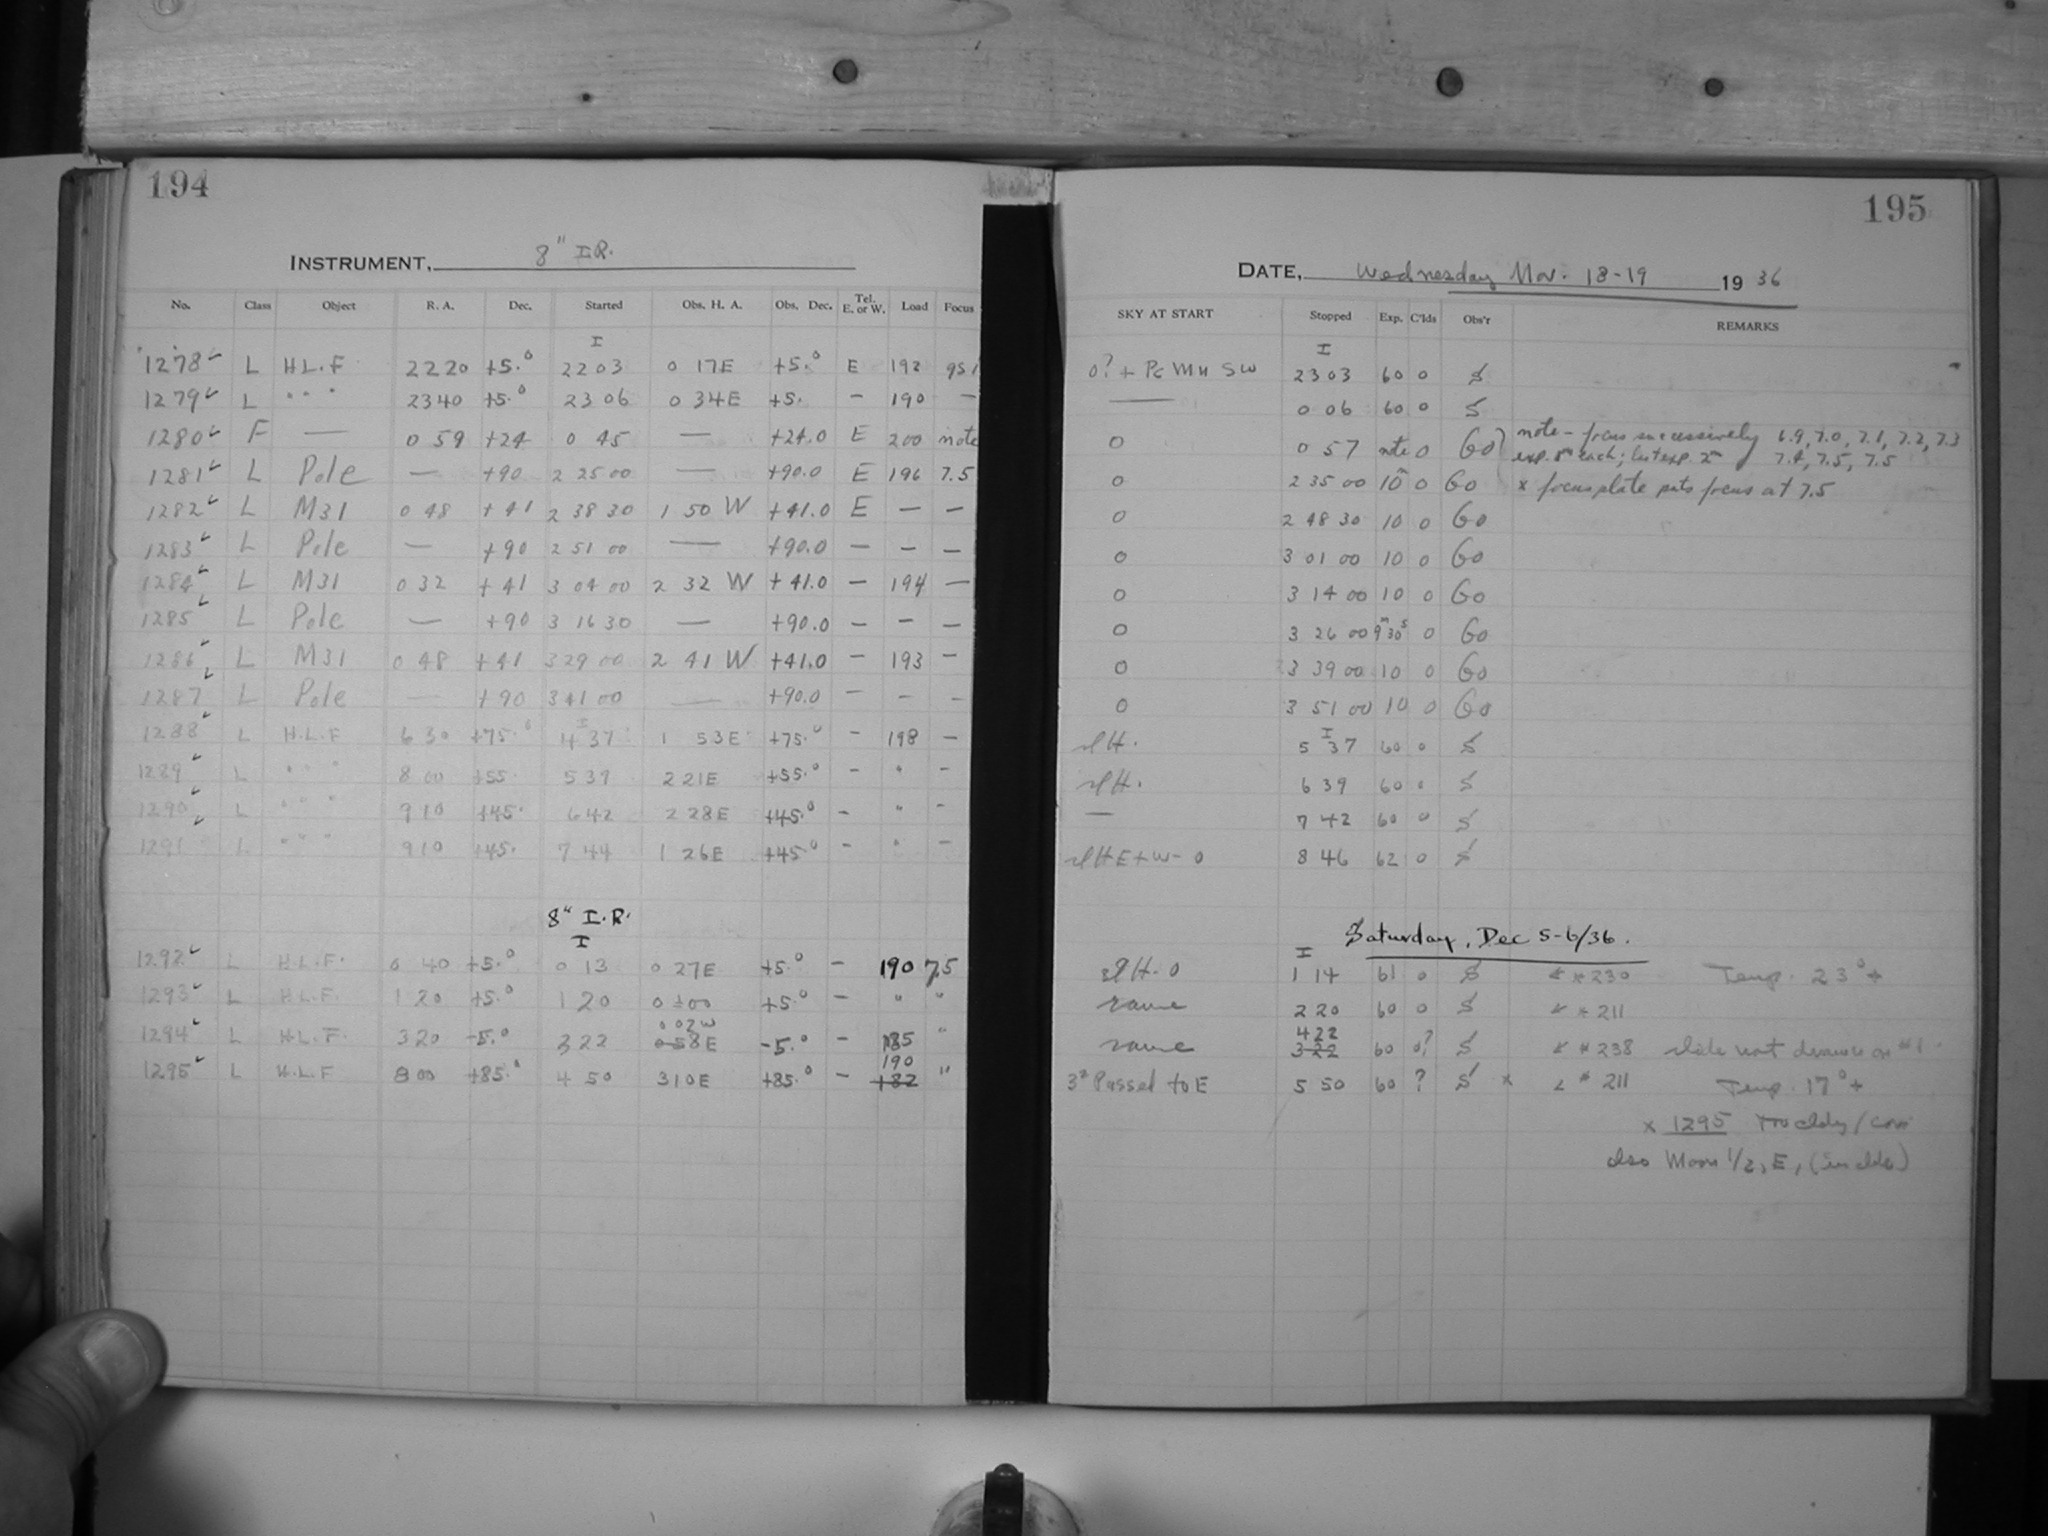 194
INSTRUMENT, 8" I.R.
No. Class Object R. A. Dec. Started Obs. H. A. Obs. Dec. Tel. E. or W. Load Focus
I
1278 L H.L.F 22 20 +5.° 22 03 0 17E +5.° E 192 951
1279 L " " " 23 40 +5.° 23 06 0 34E +5. — 190 —
1280 F — 0 59 +24 0 45 — +24.0 E 200 note
1281 L Pole — +90 2 25 00 — +90.0 E 196 7.5
1282 L M31 0 48 +41 2 38 30 1 50 W +41.0 E — —
1283 L Pole — +90 2 51 00 — +90.0 — — —
1284 L M31 0 32 +41 3 04 00 2 32 W +41.0 — 194 —
1285 L Pole — +90 3 16 30 — +90.0 — — —
1286 L M31 0 48 +41 3 29 00 2 41 W +41.0 — 193 —
1287 L Pole — +90 3 41 00 — +90.0 — — —
I
1288 L H.L.F 6 30 +75.° 4 37 1 53E +75.° — 198 —
1289 L " " " 8 00 +55 5 39 2 21E +55.° — " —
1290 L " " " 9 10 +45. 6 42 2 28E +45.° — " —
1291 L " " " 9 10 +45. 7 44 1 26E +45.° — " —
8" I.R.
I
1292 L H.L.F. 0 40 +5.° 0 13 0 27E +5.° — 190 7.5
1293 L H.L.F. 1 20 +5.° 1 20 0 ±00 +5.° — " "
0 02W
1294 L H.L.F. 3 20 -5.° 3 22 0 58E -5.° — 185 "
190
1295 L H.L.F 8 00 +85.° 4 50 3 10E +85.° — +82 "
195
DATE, Wednesday Nov. 18-19 1936
SKY AT START Stopped Exp. C'lds Obs'r REMARKS
I
0? + Pc Mn SW 23 03 60 0 S
— 0 06 60 0 S
0 0 57 note 0 Go note - focus successively 6.9, 7.0, 7.1, 7.2, 7.3
exp. 8m each; last exp. 2m 7.4, 7.5, 7.5
0 2 35 00 10m 0 Go x focus plate puts focus at 7.5
0 2 48 30 10 0 Go
0 3 01 00 10 0 Go
0 3 14 00 10 0 Go
0 3 26 00 9m30s 0 Go
0 3 39 00 10 0 Go
0 3 51 00 10 0 Go
I
slH. 5 37 60 0 S
slH. 6 39 60 0 S
— 7 42 60 0 S
slH E+W - 0 8 46 62 0 S
Saturday, Dec 5-6/36.
I
slH. 0 1 14 61 0 S * *230 Temp. 23°+
same 2 20 60 0 S * *211
422
same 322 60 0? S * *238 slide not drawn on #1
Passed to E 5 50 60 ? S x *211 Temp. 17°+
x 1295 Too cldy/
also Moon 1/2, E, (in clds)